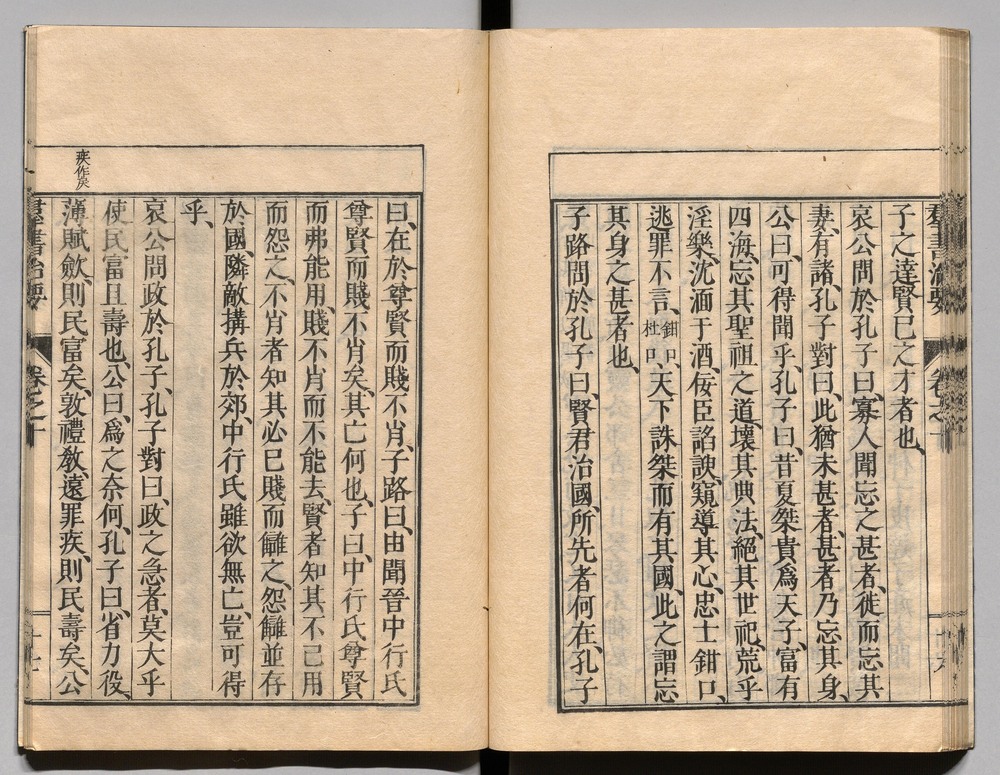 羣書治要 卷之十
子之達賢已之才者也、
哀公問於孔子曰、寡人聞忘之甚者、徙而忘其
妻、有諸、孔子對曰、此猶未甚者、甚者乃忘其身、
公曰、可得聞乎、孔子曰、昔夏桀貴爲天子、富有
四海、忘其聖祖之道、壞其典法、絕其世祀、荒乎
淫樂、沈湎于酒、佞臣諂諛、窺導其心、忠士鉗口、
逃罪不言、鉗口、杜口、天下誅桀而有其國、此之謂忘
其身之甚者也、
子路問於孔子曰、賢君治國、所先者何在、孔子
曰、在於尊賢而賤不肖、子路曰、由聞晉中行氏
尊賢而賤不肖矣、其亡何也、子曰、中行氏尊賢
而弗能用、賤不肖而不能去、賢者知其不己用
而怨之、不肖者知其必已賤而讎之、怨讎並存
於國、隣敵搆兵於郊、中行氏雖欲無亡、豈可得
乎、
哀公問政於孔子、孔子對曰、政之急者、莫大乎
使民富且壽也、公曰、爲之奈何、孔子曰、省力役、
薄賦斂、則民富矣、敦禮敎、遠罪疾、則民壽矣、公
疾作戾
羣書治要 卷之十